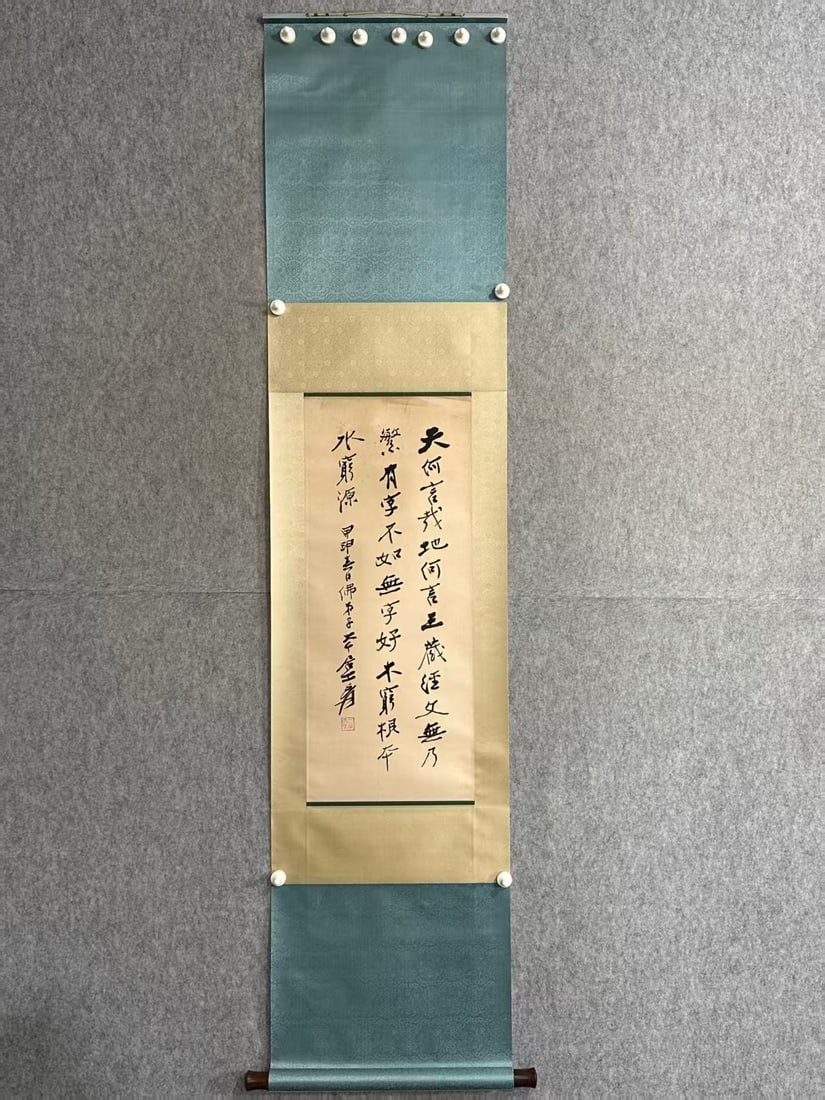 天何言哉地何言三藏經文無乃
繁有字不如無字好木窮根本
水窮源 甲申春日佛弟子大千居士爰